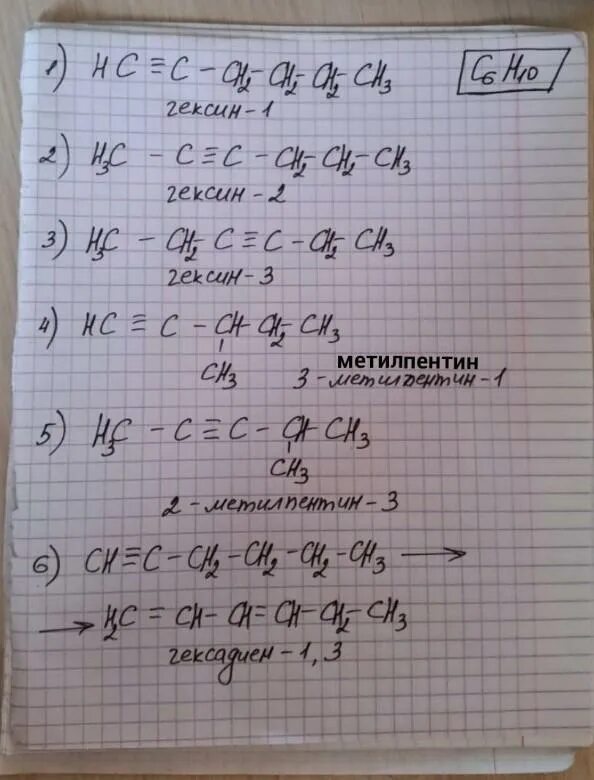 1) HC ≡ C - CH₂ - CH₂ - CH₂ - CH₃
C₆H₁₀
гексин-1
2) H₃C - C ≡ C - CH₂ - CH₂ - CH₃
гексин-2
3) H₃C - CH₂ C ≡ C - CH₂ - CH₃
гексин-3
4) HC ≡ C - CH - CH₂ - CH₃
метилпентин
CH₃ 3-метилпентин-1
5) H₃C - C ≡ C - CH - CH₃
CH₃
2-метилпентин-3
6) CH≡C-CH₂-CH₂-CH₂-CH₃ →
→ H₂C = CH-CH=CH-CH₂-CH₃
гексадиен-1,3